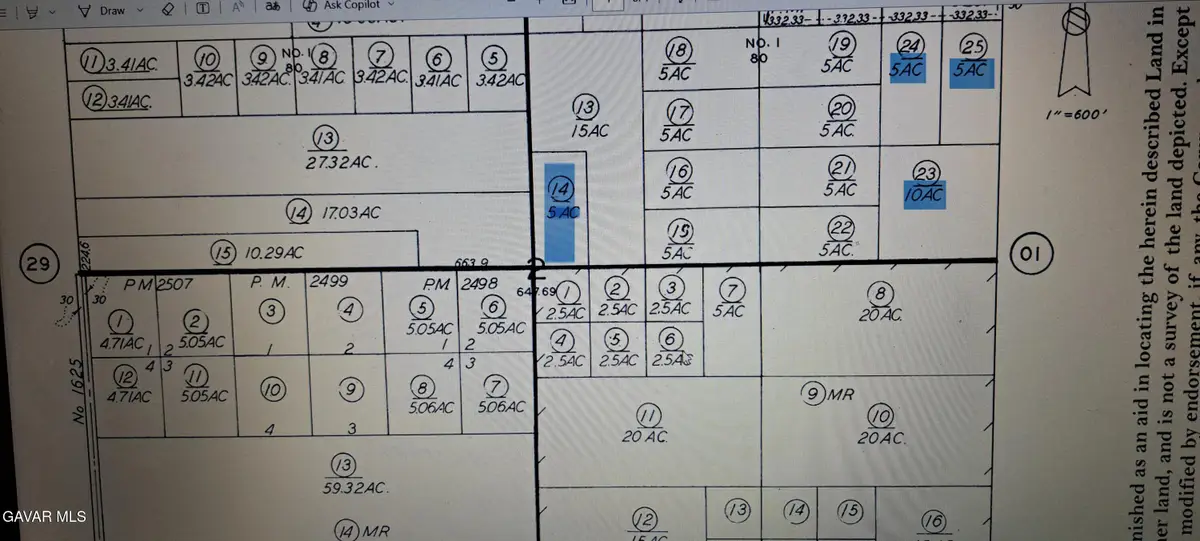 Draw
T
Ask Copilot
332.33 332.33 332.33 332.33
11 3.41AC.
10
3.42AC
9
3.42AC.
NO. 1
80
8
3.41AC
7
3.42AC
6
3.41AC
5
3.42AC
12 3.41AC.
13
27.32AC.
14 17.03AC
15 10.29AC
224.6
663.9
13
15AC
14
5 AC
18
5AC
17
5AC
16
5AC
15
5AC
NO. 1
80
19
5AC
20
5AC.
21
5AC
22
5AC.
24
5AC
25
5AC
23
10AC
1"=600'
29
2
01
30
30
No 1625
PM 2507
P. M. 2499
PM 2498
647.69
1
4.71AC
2
5.05AC
3
4
5
5.05AC
6
5.05AC
1 2 1 2 1 2
4 3 4 3
12
4.71AC
11
5.05AC
10
9
8
5.06AC
7
5.06AC
4 3
13
59.32AC.
14 MR
1
2.5AC
2
2.5AC
3
2.5AC
7
5AC
8
20AC.
4
2.5AC
5
2.5AC
6
2.5AC
9 MR
11
20AC.
10
20AC.
12
15AC
13
14
15
16
nished as an aid in locating the herein described Land in
er land, and is not a survey of the land depicted. Except
modified by endorsement, if any, the
GAVAR MLS